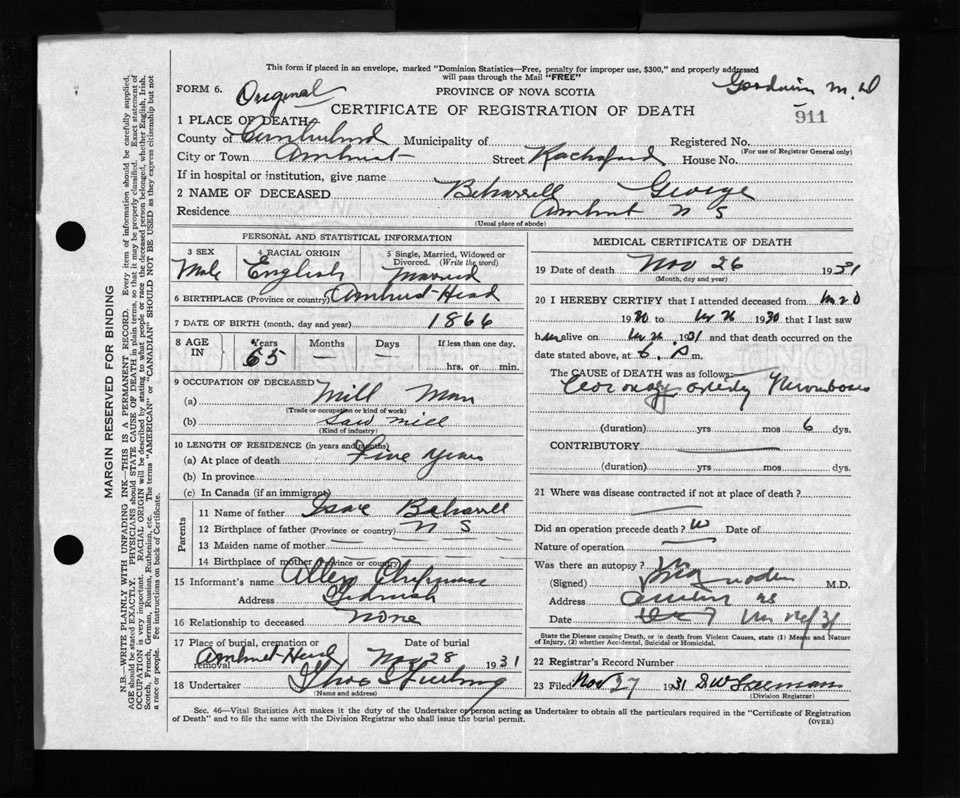 This form if placed in an envelope, marked "Dominion Statistics—Free, penalty for improper use, $300," and properly addressed
will pass through the Mail "FREE"
FORM 6. Original PROVINCE OF NOVA SCOTIA Goodwin M.D
CERTIFICATE OF REGISTRATION OF DEATH 911
1 PLACE OF DEATH
County of Cumberland Municipality of Registered No.
(For use of Registrar General only)
City or Town Amherst Street House No.
If in hospital or institution, give name
2 NAME OF DECEASED Beharrell George
Residence Amherst N S
(Usual place of abode)
PERSONAL AND STATISTICAL INFORMATION
3 SEX 4 RACIAL ORIGIN 5 Single, Married, Widowed or Divorced. (Write the word)
Male English Married
6 BIRTHPLACE (Province or country) Amherst Head
7 DATE OF BIRTH (month, day and year) 1866
8 AGE IN Years Months Days If less than one day,
65 — — hrs. or min.
9 OCCUPATION OF DECEASED
(a) Mill Man
(Trade or occupation or kind of work)
(b) Saw mill
(Kind of industry)
10 LENGTH OF RESIDENCE (in years and months)
(a) At place of death Five years
(b) In province
(c) In Canada (if an immigrant)
Parents
11 Name of father Isaac Beharrell
12 Birthplace of father (Province or country) N S
13 Maiden name of mother
14 Birthplace of mother (Province or country)
15 Informant's name Allen Chapman
Address Tidnish
16 Relationship to deceased none
17 Place of burial, cremation or removal Date of burial
Amherst Head Nov 28 1931
18 Undertaker
(Name and address)
MEDICAL CERTIFICATE OF DEATH
19 Date of death Nov 26 1931
(Month, day and year)
20 I HEREBY CERTIFY that I attended deceased from
1930 to 26 1930 that I last saw
h alive on 26 1931 and that death occurred on the
date stated above, at 6 P m.
The CAUSE of DEATH was as follows:
Coronary artery Thrombosis
(duration) yrs mos 6 dys.
CONTRIBUTORY
(duration) yrs mos dys.
21 Where was disease contracted if not at place of death?
Did an operation precede death? Date of
Nature of operation
Was there an autopsy?
(Signed) M.D.
Address Amherst NS
Date 26/31
State the Disease causing Death, or in death from Violent Causes, state (1) Means and Nature
of Injury, (2) whether Accidental, Suicidal or Homicidal.
22 Registrar's Record Number
23 Filed Nov 27 1931
(Division Registrar)
Sec. 46—Vital Statistics Act makes it the duty of the Undertaker or person acting as Undertaker to obtain all the particulars required in the "Certificate of Registration
of Death" and to file the same with the Division Registrar who shall issue the burial permit.
(OVER)
MARGIN RESERVED FOR BINDING
N.B.—WRITE PLAINLY WITH UNFADING INK—THIS IS A PERMANENT RECORD. Every item of information should be carefully supplied.
AGE should be stated EXACTLY. PHYSICIANS should STATE CAUSE OF DEATH in plain terms, so that it may be properly classified. Exact statement of
OCCUPATION is very important. RACIAL ORIGIN will be described by stating to what people or race the deceased person belonged, whether English, Irish,
Scotch, French, German, Russian, Ruthenian, etc. The terms "AMERICAN" or "CANADIAN" SHOULD NOT BE USED as they express citizenship but not
a race or people. See instructions on back of Certificate.